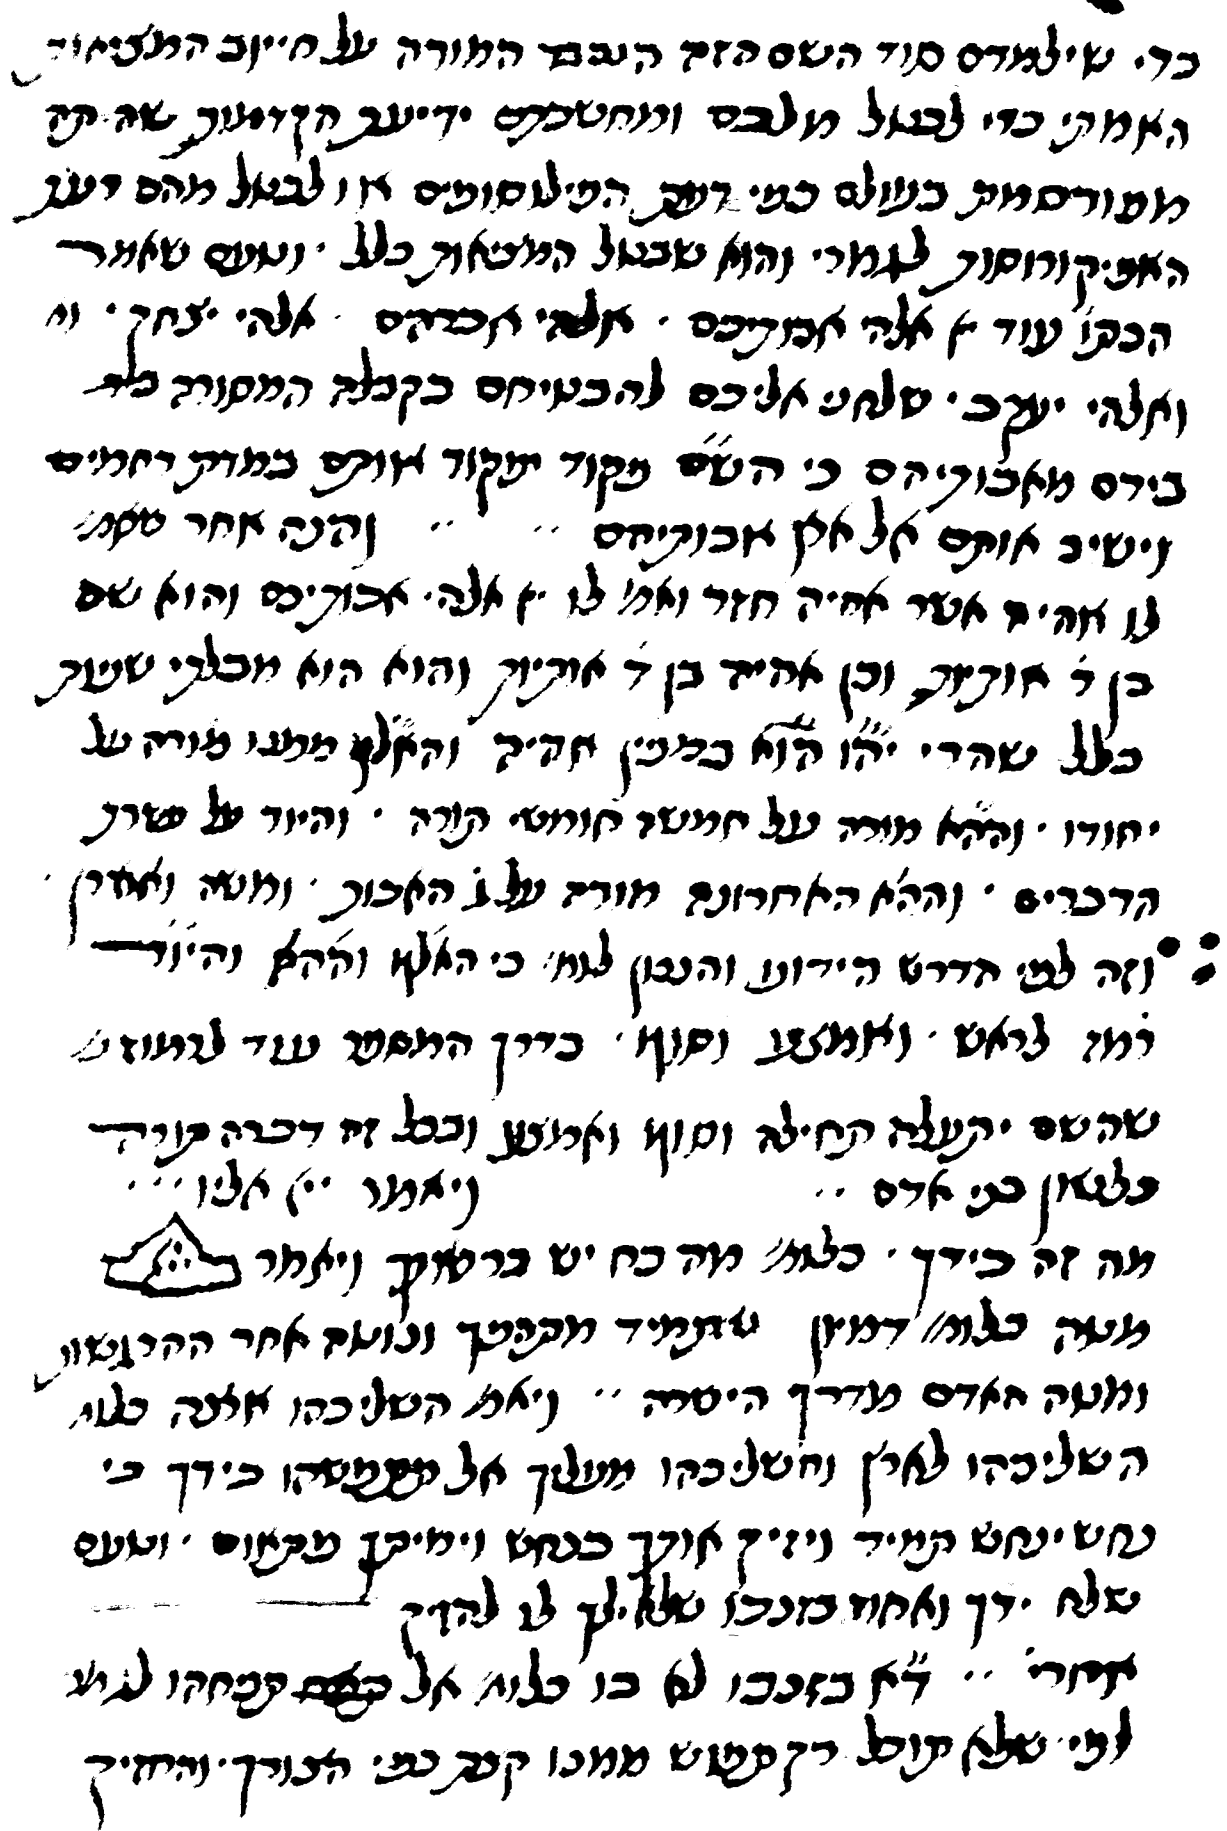 כדי שילמדם סוד השם הזה הנכבד המורה על חיוב המציאות
האמתי כדי לבטל מלבם ומחשבתם ידיעת הקדמות שהיתה
מפורסמת בעולם כפי דעת הפילוסופים או לבטל מהם דעת
האפיקורוסות לגמרי והוא שבטל המציאות כלל · וטעם שאמר
הכתו' עוד יי אלהי אבותיכם · אלהי אברהם · אלהי יצחק ·
ואלהי יעקב · שלחני אליכם להבטיחם בקבלה המסורה
בידם מאבותיהם כי הש״ם פקוד יפקוד אותם במדת רחמים
וישיב אותם אל ארץ אבותיהם ·· ·· והנה אחר
לו אהיה אשר אהיה חזר ואמ' לו יי אלהי אבותיכם והוא שם
בן ד' אותיות וכן אהיה בן ד' אותיות והוא הוא מבלתי שנוי
כלל שהרי יהו הוא כמנין אהיה והאלף ממנו מורה על
יחודו · וההא מורה על חמשה חומשי תורה · והיוד על עשרת
הדברים · וההא האחרונה מורה על ג' האבות · ומשה ואהרן ·
וזה לפי הדרש הידוע והנכון לומ' כי האלף וההא והיוד
רמז לראש · ואמצע וסוף · בדרך המספר עוד לרמוז
שהשם יתעלה תחילה וסוף ואמצע ובכל זה דברה תורה
כלשון בני אדם ·· ויאמר ייי אליו ···
מה זה בידך · כלומ' מה כח יש ברשותך ויאמר
מטה כלומ' דמיון שתמיד מתהפך ונוטה אחר ההרגשות
ומטה האדם מדרך הישרה ·· ויאמ' השליכהו ארצה כלומ'
השליכהו לארץ והשליכהו מעליך אל תמשהו בידך כי
נחש ינחש תמיד ויזיק אותך כנחש וימיתך פתאום · וטעם
שלח ידך ואחוז בזנבו שלא ילך לו להזיק
אחרי' ·· ד״א בזנבו לא בו כלומ' אל תפתחהו
לפי שלא תוכל רק תפוש ממנו קצת כפי הצורך · והחזיק